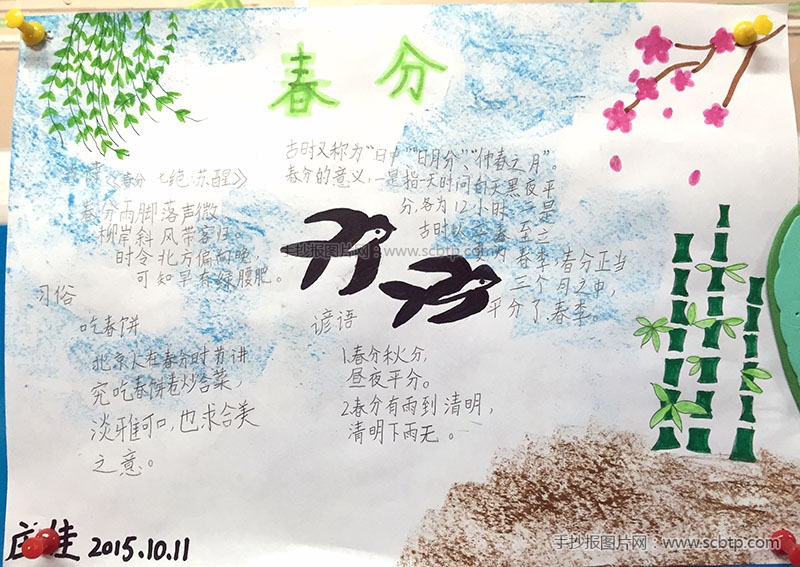 春分
古时又称为“日中”“日月分”、“仲春之月”。
春分的意义,一是指一天时间白天黑夜平
分,各为12小时;二是
古时以立春至立
夏为春季,春分正当
三个月之中,
平分了春季。
诗《春分 七绝·苏醒》
春分雨脚落声微
柳岸斜风带客归
时令北方偏向晚,
可知早有绿腰肥。
习俗
吃春饼
北京人在春分时节讲
究吃春饼卷炒合菜,
淡雅可口,也求合美
之意。
谚语
1.春分秋分,
昼夜平分。
2.春分有雨到清明,
清明下雨无。
2015.10.11
手抄报图片网:www.scbtp.com
手抄报图片网:www.scbtp.com